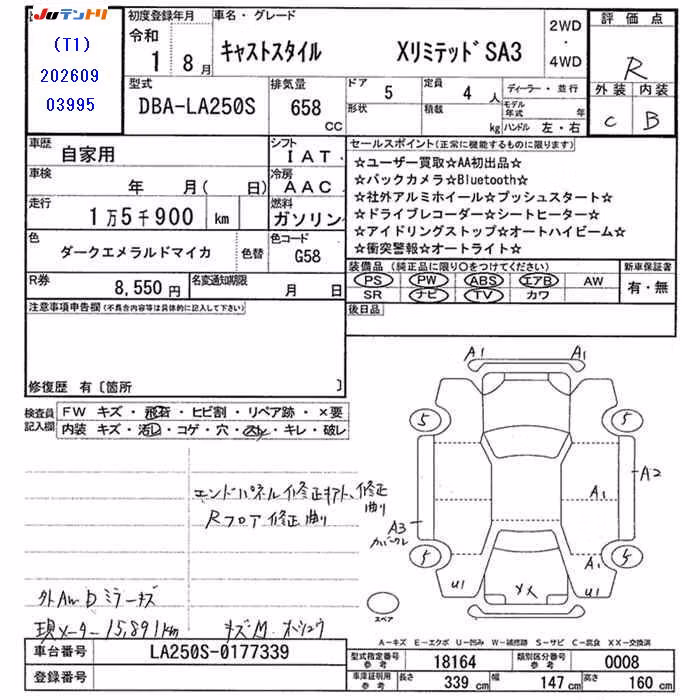 JUテントリ
(T1)
202609
03995
初度登録年月
令和
1 8月
車名・グレード
キャストスタイル XリミテッドSA3
2WD
・
4WD
評価点
R
外装 内装
C B
型式
DBA-LA250S
排気量
658
CC
ドア
5
定員
4 人
形状
積載
kg
ディーラー・並行
モデル年式 年
ハンドル 左・右
車歴
自家用
シフト
IAT
車検
年 月( 日)
冷房
AAC
走行
1万5千900 km
燃料
ガソリン
色
ダークエメラルドマイカ
色替
色コード
G58
R券
8,550円
名変通知期限
月 日
セールスポイント(正常に機能するものに限ります)
☆ユーザー買取☆AA初出品☆
☆バックカメラ☆Bluetooth☆
☆社外アルミホイール☆プッシュスタート☆
☆ドライブレコーダー☆シートヒーター☆
☆アイドリングストップ☆オートハイビーム☆
☆衝突警報☆オートライト☆
装備品(純正品に限り○をつけてください)
PS PW ABS エアB AW
SR ナビ TV カワ
新車保証書
有・無
後日品
注意事項申告欄(不具合内容等は具体的に記入して下さい)
修復歴 有〔箇所 〕
検査員
記入欄
FW キズ・飛石・ヒビ割・リペア跡・×要
内装 キズ・汚レ・コゲ・穴・スレ・キレ・破レ
エンドパネル修正キアト、修正曲り
Rフロア修正曲り
外AW Dミラーキズ
現メーター15,891km
A1 A1
5 5
A2
A1
A3
5 5
A1
U1 U1
スペア
A-キズ E-エクボ U-凹み W-補修跡 S-サビ C-腐食 XX-交換済
車台番号
LA250S-0177339
登録番号
型式指定番号
参考
18164
類別区分番号
参考
0008
車庫証明用
参考
長さ 339 cm 幅 147 cm 高さ 160 cm